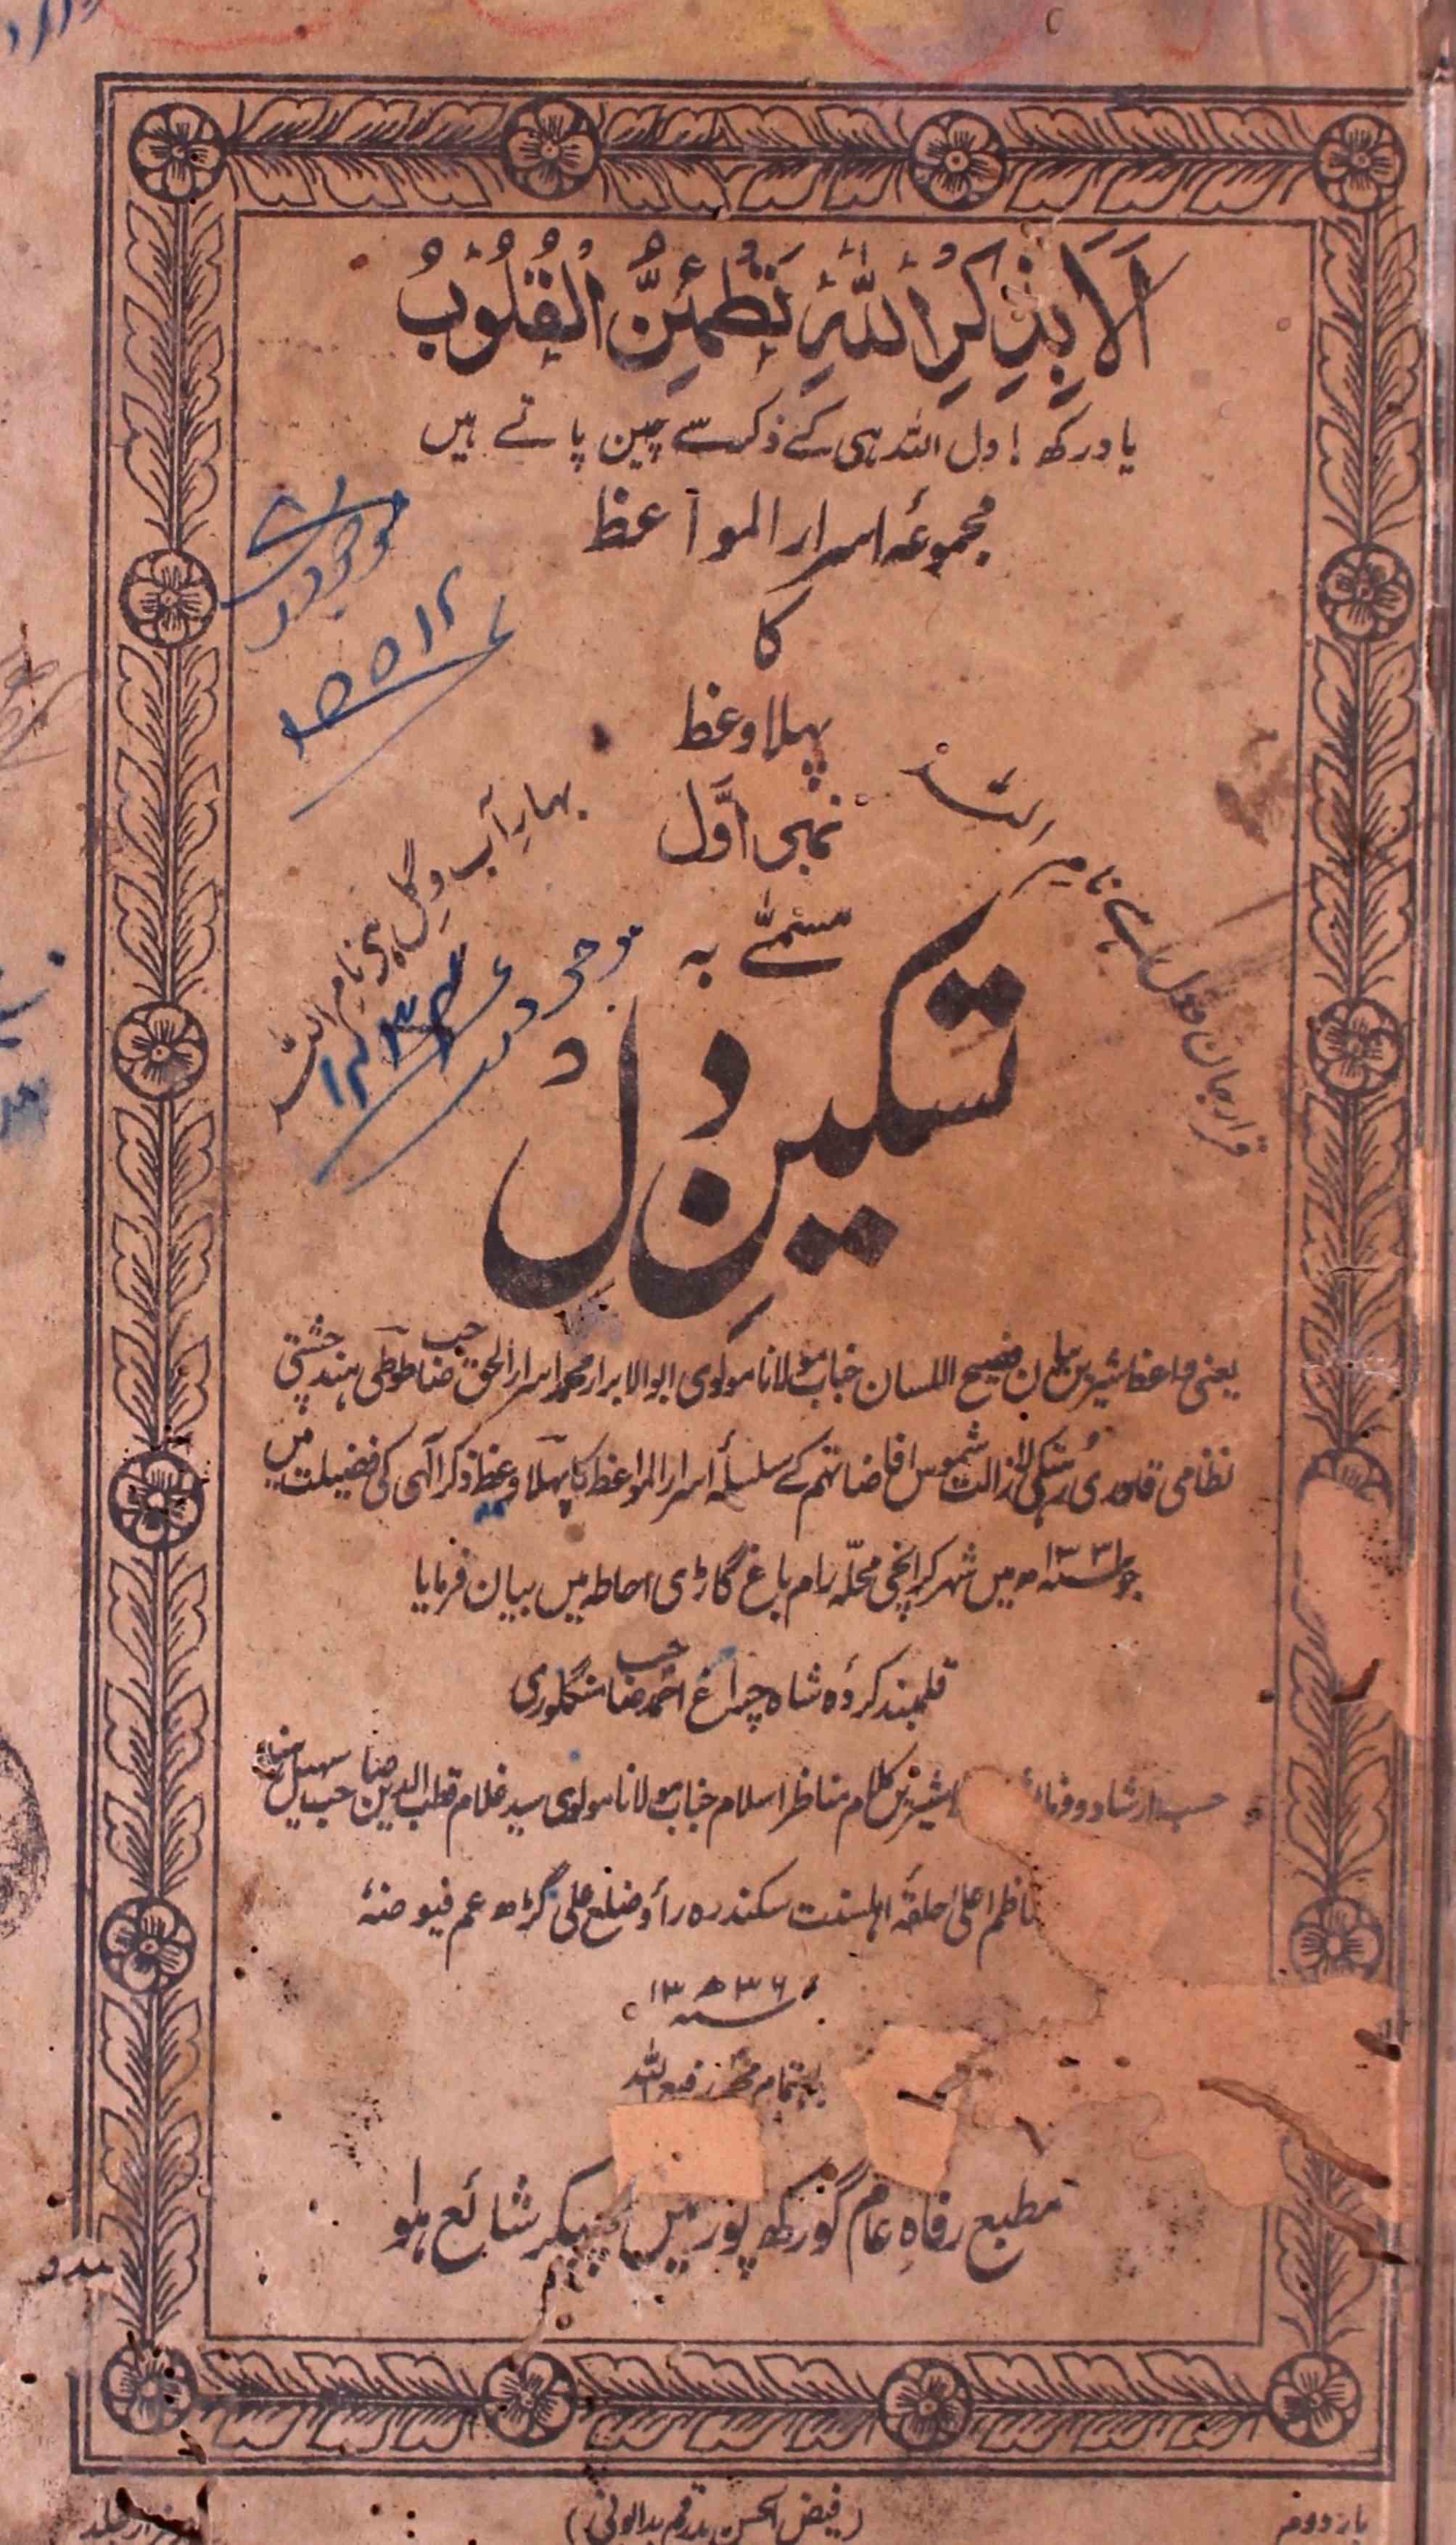 اَلَا بِذِكْرِ اللّٰهِ تَطْمَئِنُّ الْقُلُوْبُ
یاد رکھو! دل اللہ ہی کے ذکر سے چین پاتے ہیں
مجموعۂ اسرار المواعظ
کا
پہلا وعظ
نمبر اوّل
مسمّٰے بہ
قرار جان و دل ہے نامِ اللہ
بہارِ آب و گِل ہی نامِ اللہ
موجود
۱۵۵۱۲
موجود
تسکینِ دل
یعنی واعظ شیریں بیان فصیح اللسان جناب مولانا مولوی ابوالابرار محمد اسرار الحق صاحب طوطی ہند چشتی
نظامی قادری رہتکی لازالت شموس افاضاتہم کے سلسلۂ اسرار المواعظ کا پہلا وعظ ذکر الٰہی کی فضیلت میں
جو ۱۳۳ ھ میں شہر کرانچی محلّہ رام باغ گاڑی احاطہ میں بیان فرمایا
قلمبند کردہ شاہ چراغ احمد صاحب منگلوری
حسب ارشاد و شیریں کلام مناظر اسلام جناب مولانا مولوی سید غلام قطب الدین صاحب سہیل
ناظم اعلیٰ حلقۂ اہلسنت سکندرہ راؤ ضلع علی گڑھ عم فیوضہٗ
۱۳۳۶ھ
باہتمام محمد رفیع اللہ
مطبع رفاہِ عام گورکھپور میں چھپکر شائع ہوا
بار دوم
(فیض الحسن بدرقم بدایونی)
ہزار جلد